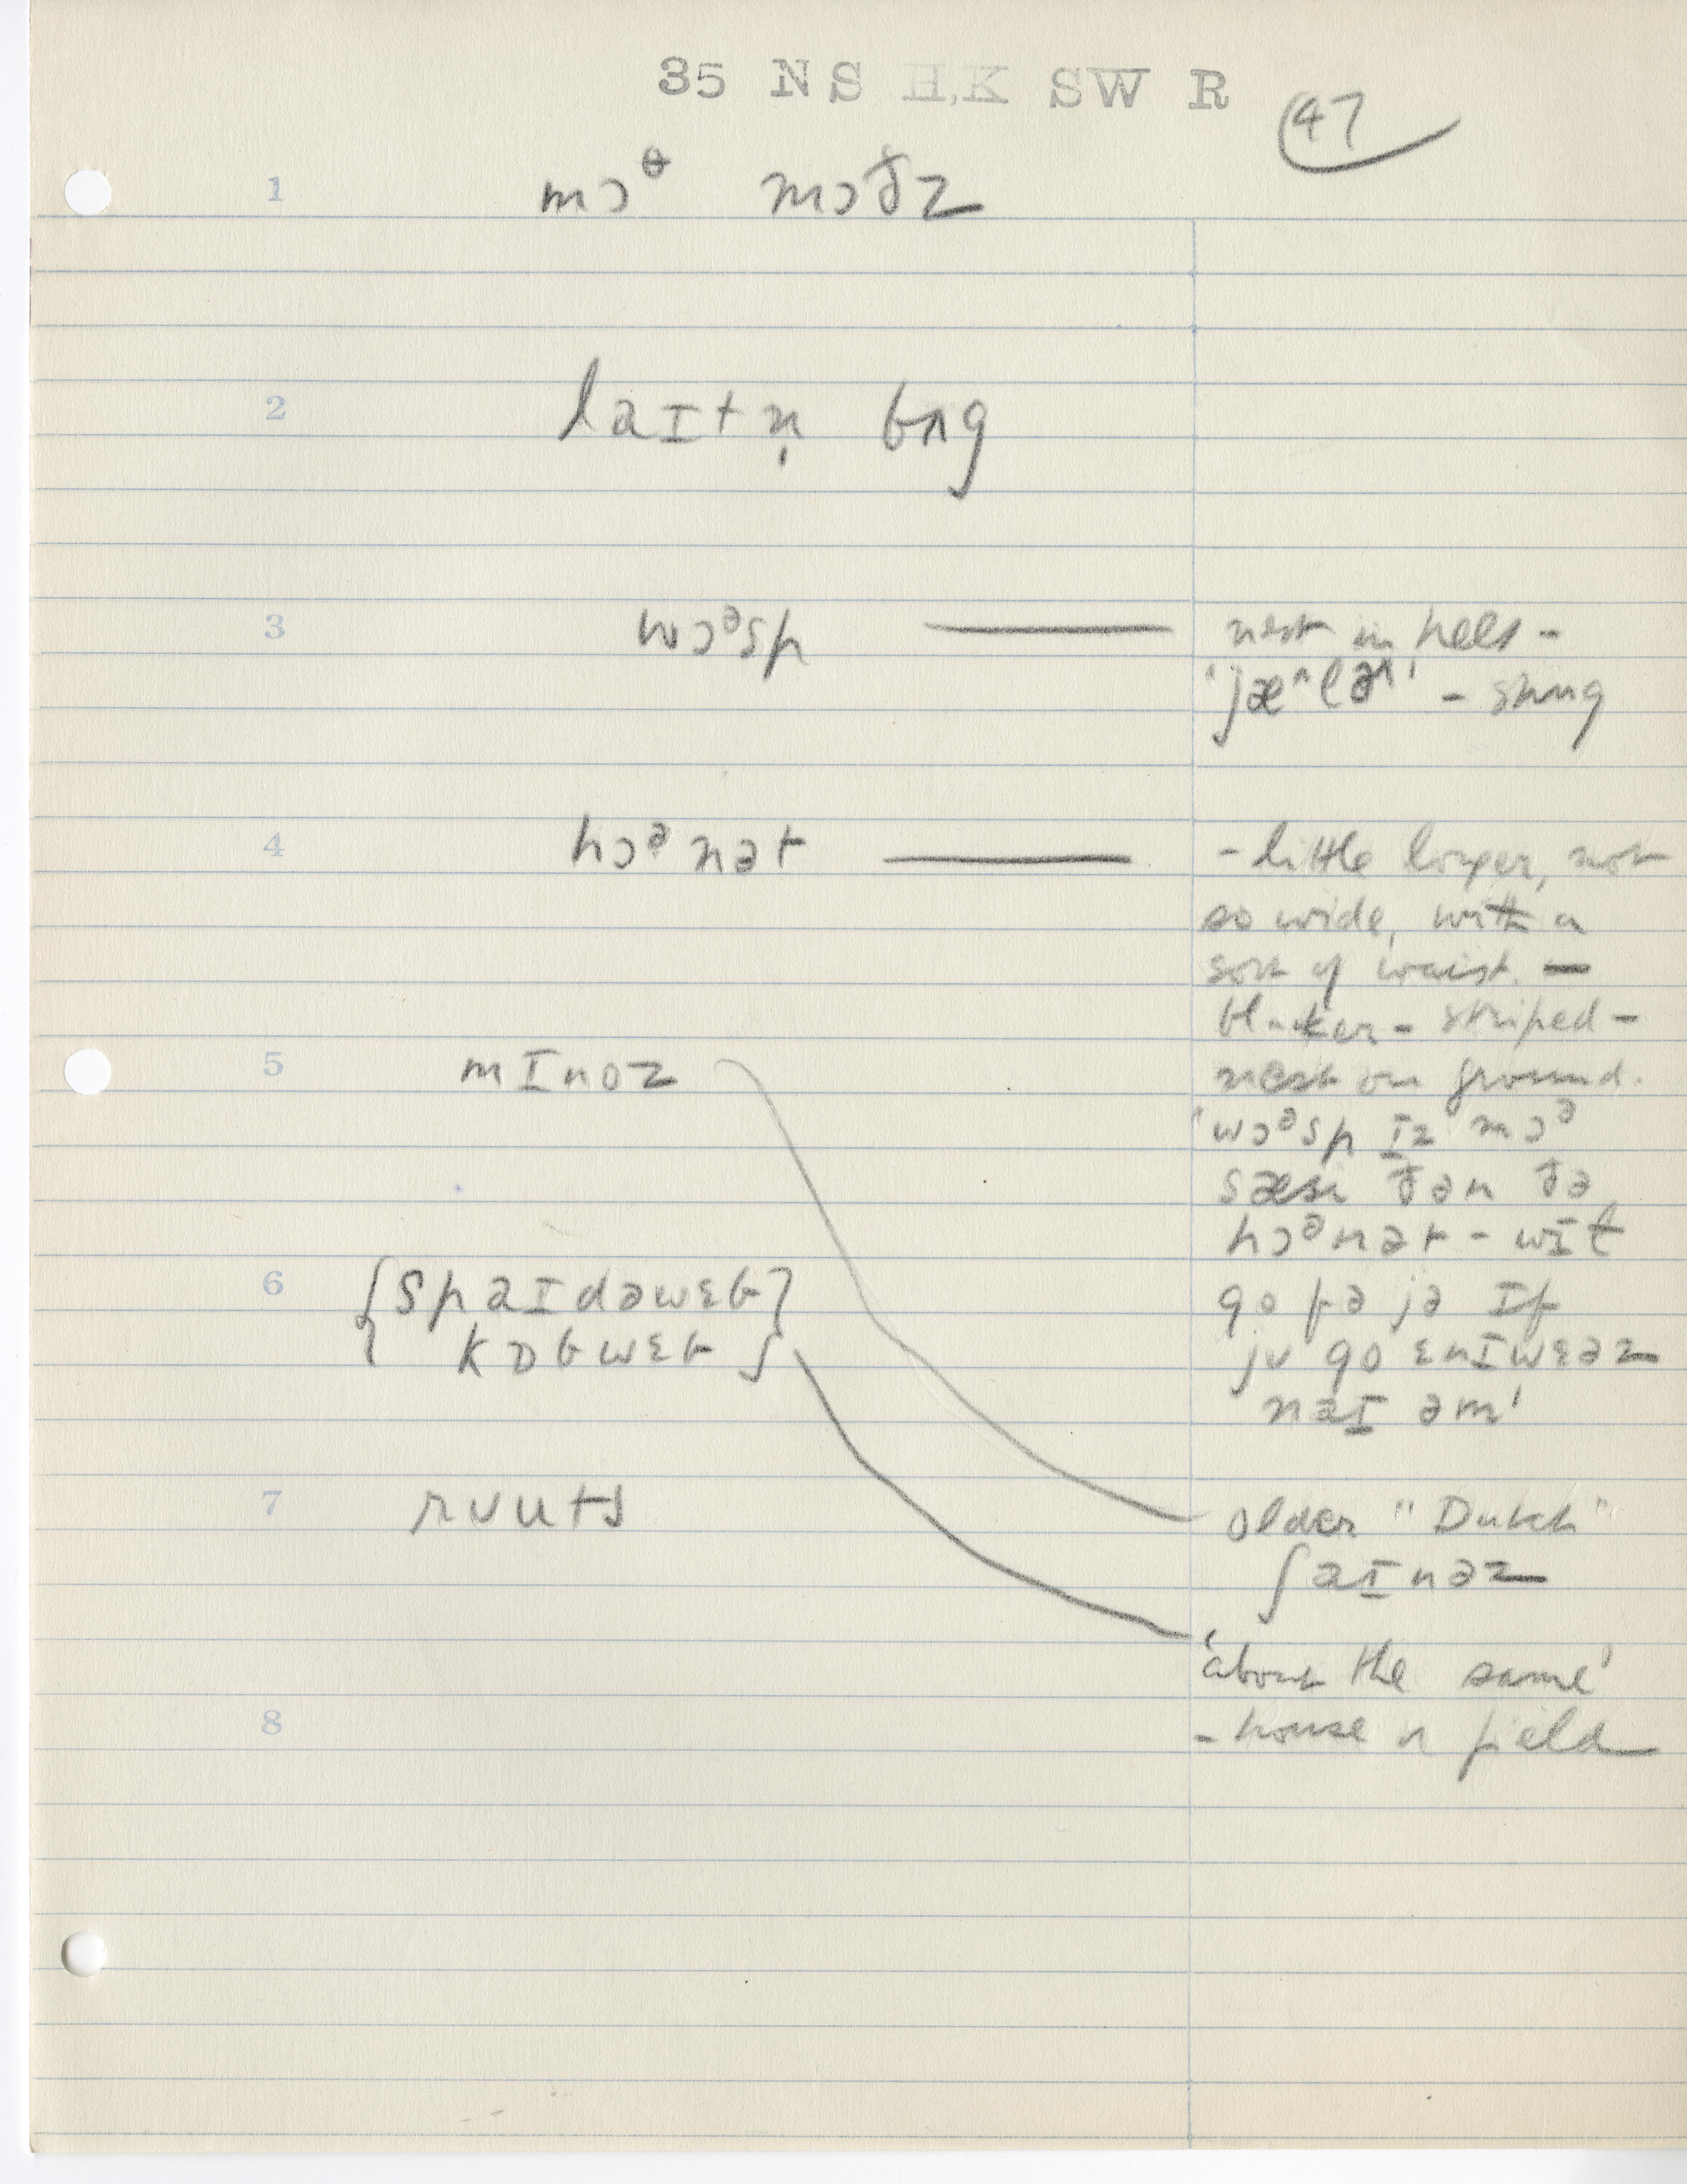 35 NS H,K SW R
47
1 mɔᶿ mɔðz
2 laɪtn̩ bʌg
3 wɔᵊsp — nest in trees -
'jæ^lə^' - stung
4 hɔᵊnət — - little longer, not
so wide, with a
sort of waist. -
blacker - striped -
nest on ground.
'wɔᵊsp ɪz mɔᵊ
sæsɪ ðən ðə
hɔᵊnət - wɪl
go fə jə ɪf
jʊ go ɛnɪwɛəz
naɪ əm'
5 mɪnoz
6 {spaɪdəwɛb}
{kɒbwɛb}
7 rʊuts
older "Dutch"
ʃaɪnəz
'about the same'
- house or field
8